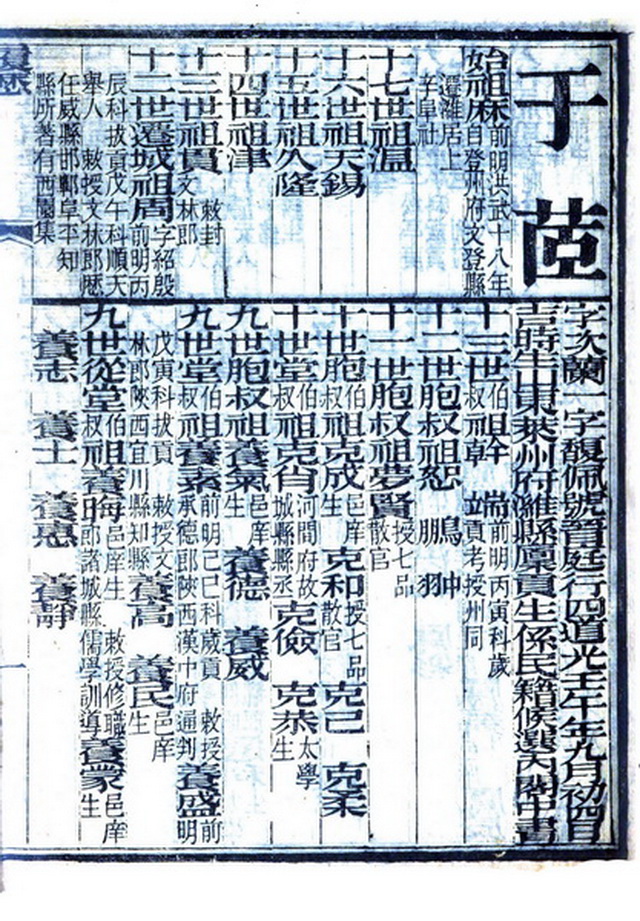 于茝
字次蘭一字馥佩號晉庭行四道光壬午年九月初四日
吉時生山東萊州府濰縣廩貢生係民籍候選內閣中書
始祖麻前明洪武十八年自登州府文登縣
遷濰居上辛阜社
十七世祖溫
十六世祖天錫
十五世祖久隆
十四世祖津
十三世祖貫敕封文林郎
十二世遷城祖周字紹殷前明丙
辰科拔貢戊午科順天
舉人 敕授文林郎歷
任威縣邯鄲阜平知
縣所著有西園集
十三世伯叔祖幹 端前明丙寅科歲貢考授州同
十二世胞叔祖恕 鳴冲 鵬羽
十一世胞叔祖夢賢授七品散官
十世胞伯叔祖克成邑庠生 克和授七品散官 克己 克柔
十世堂伯叔祖克肖河間府故城縣縣丞 克儉 克恭太學生
九世胞叔祖養氣邑庠生 養德 養威
九世堂伯叔祖養素前明己巳科歲貢 敕授承德郎陝西漢中府通判 養盛前明
戊寅科拔貢 敕授文林郎陝西宜川縣知縣 養高 養民邑庠生
九世從堂伯叔祖養晦邑庠生 敕授修職郎諸城縣儒學訓導 養蒙邑庠生
養志 養士 養惠 養靜
履歷